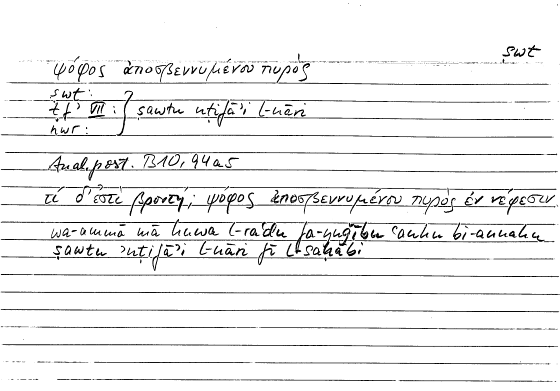 ṣwt
ψόφος ἀποσβεννυμένου πυρός
ṣwt:
ṭfʾ VII: } ṣawtu nṭifāʾi l-nāri
nwr:
Anal. post. B10, 94a5
τί δ'ἐστὶ βροντή; ψόφος ἀποσβεννυμένου πυρὸς ἐν νέφεσιν
wa-ammā mā huwa l-raʿdu fa-yuǧību ʿanhu bi-annahu
ṣawtu ʾnṭifāʾi l-nāri fī l-saḥābi